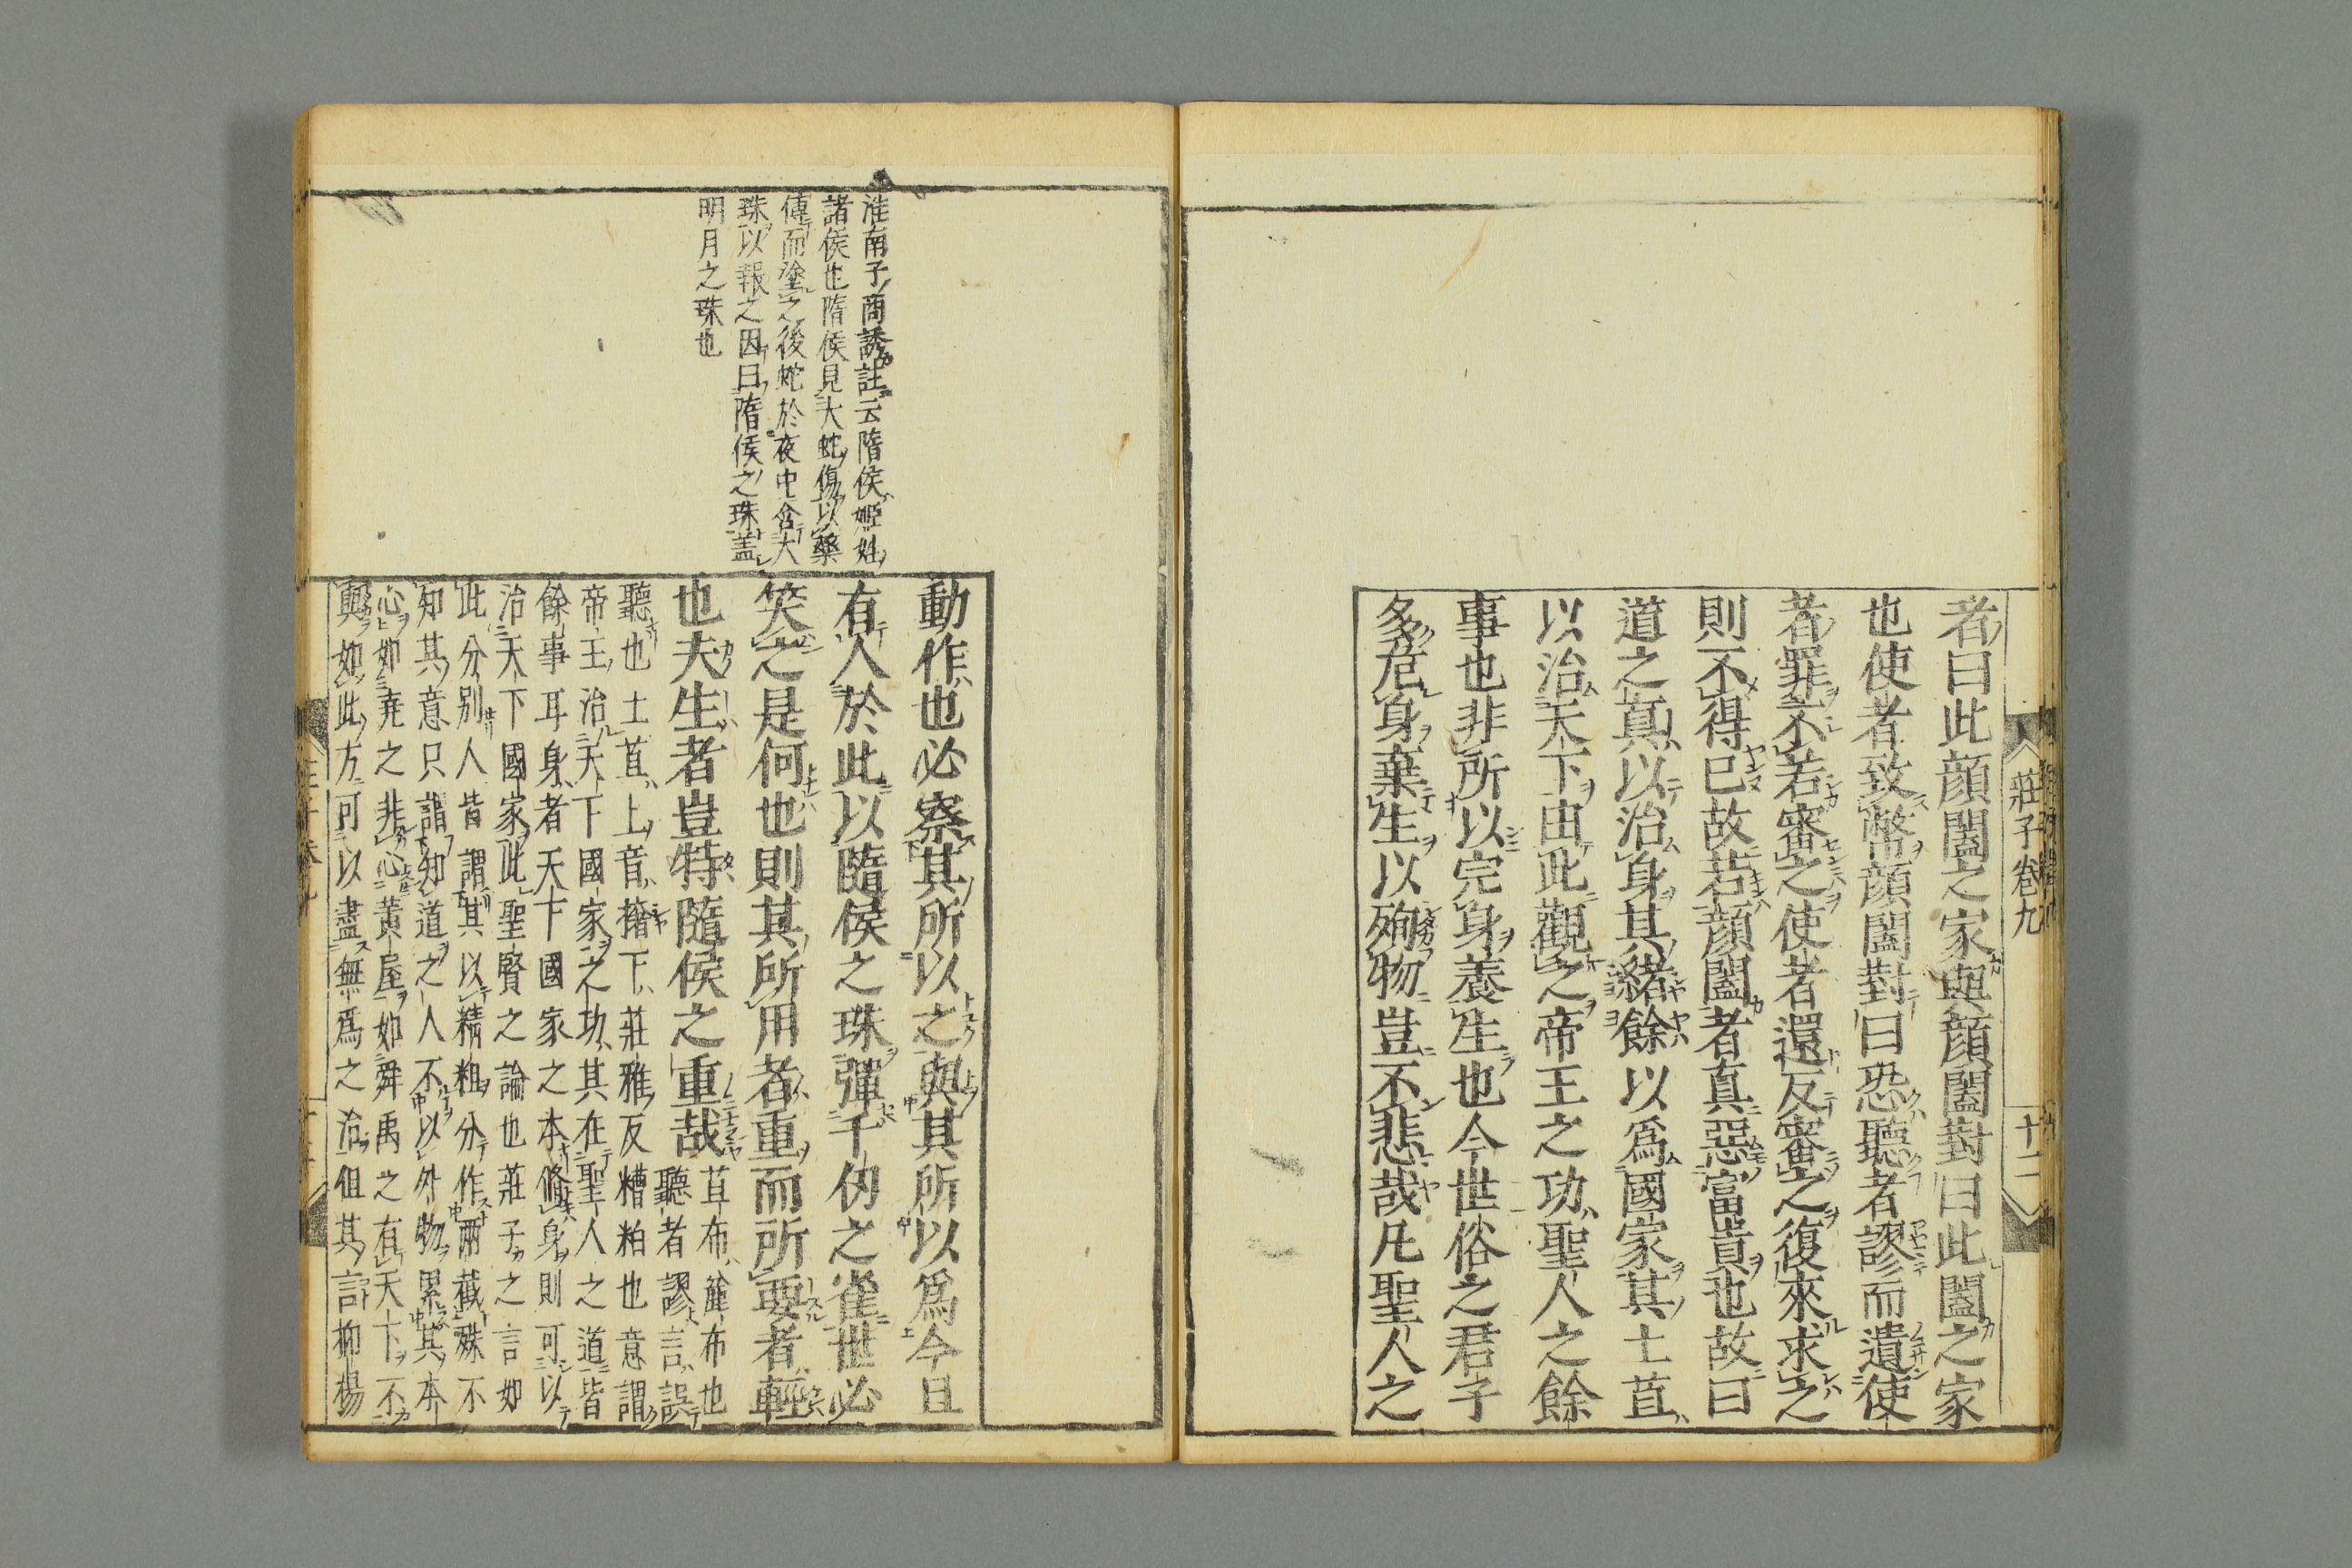 者曰此顏闔之家與顏闔對曰此闔之家
也使者致幣顏闔對曰恐聽者謬而遺使
者罪不若審之使者還反審之復來求之
則不得已故若顏闔者真惡富貴也故曰
道之真以治身其緒餘以爲國家其土苴
以治天下由此觀之帝王之功聖人之餘
事也非所以完身養生也今世俗之君子
多危身棄生以殉物豈不悲哉凡聖人之
莊子卷九
十二
淮南子商誘註云隋侯姬姓
諸侯也隋侯見大蛇傷以藥
傅而塗之後蛇於夜中含大
珠以報之因曰隋侯之珠盖
明月之珠也
動作也必察其所以之與其所以爲今且
有人於此以隨侯之珠彈千仞之雀世必
笑之是何也則其所用者重而所要者輕
也夫生者豈特隨侯之重哉
苴布麄布也
聽者謬言誤
聽也土苴上音擼下莊雅反糟粕也意謂
帝王治天下國家之功其在聖人之道皆
餘事耳身者天下國家之本脩身則可以
治天下國家此聖賢之論也莊子之言如
此分別人皆謂其以精粗分作兩截殊不
知其意只謂知道之人不以外物累其本
心如堯之非心黃屋如舜禹之有天下不
與如此方可以盡無爲之治但其言抑揚